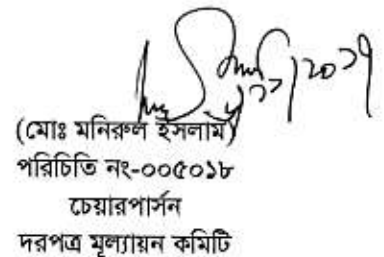 (মোঃ মনিরুল ইসলাম)
পরিচিতি নং-০০৫০১৮
চেয়ারপার্সন
দরপত্র মূল্যায়ন কমিটি